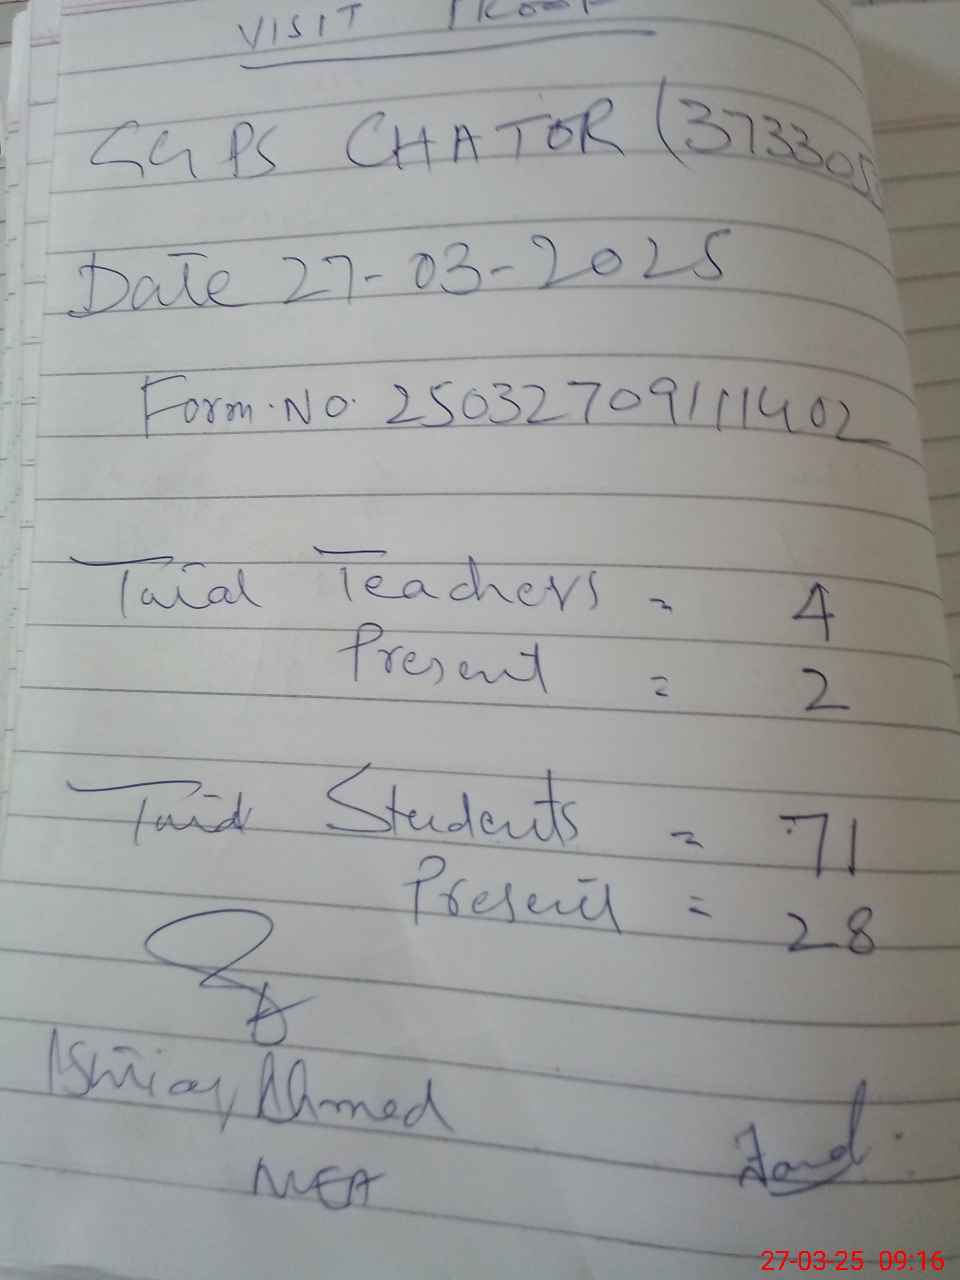 VISIT PROOF
GGPS CHATOR (373305
Date 27-03-2025
Form.No. 25032709111402
Total Teachers = 4
Present = 2
Total Students = 71
Present = 28
Ishtiaq Ahmed
MEA
27-03-25 09:16